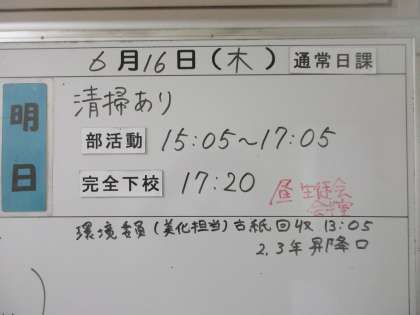 6月16日(木) 通常日課
明日
清掃あり
部活動 15:05～17:05
完全下校 17:20
昼 生徒会
会室
環境委員(美化担当)古紙回収 13:05
2.3年昇降口